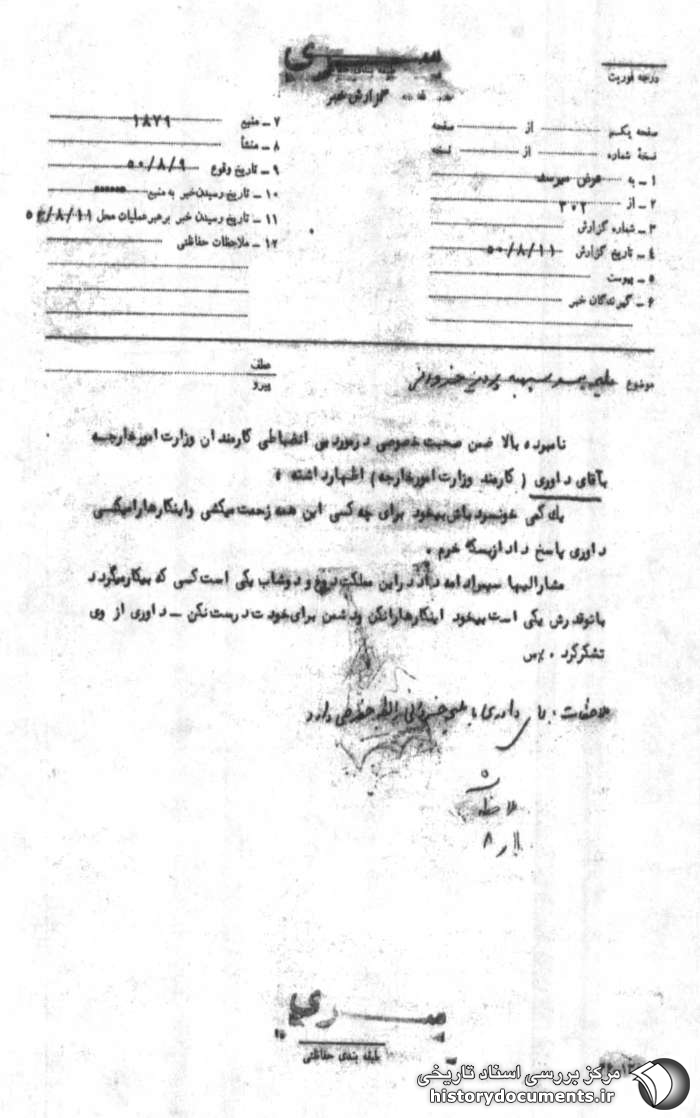 سری
طبقه بندی حفاظتی
درجه فوریت
گزارش خبر
صفحه یکم از صفحه
نسخهٔ شماره از نسخه
۱ ـ به عرض میرسد
۲ ـ از ۳۰۲
۳ ـ شماره گزارش
۴ ـ تاریخ گزارش ۵۰/۸/۱۱
۵ ـ پیوست
۶ ـ گیرندگان خبر
۷ ـ منبع ۱۸۷۹
۸ ـ منشأ
۹ ـ تاریخ وقوع ۵۰/۸/۹
۱۰ ـ تاریخ رسیدن خبر به منبع
۱۱ ـ تاریخ رسیدن خبر برهبر عملیات محل ۵۰/۸/۱۱
۱۲ ـ ملاحظات حفاظتی
عطف
پیرو
موضوع پرویز خسروانی
نامبرده بالا ضمن صحبت خصوصی در مورد بی انضباطی کارمندان وزارت امور خارجه
بآقای داوری ( کارمند وزارت امور خارجه ) اظهار داشته ،
یک کمی خونسرد باش بیخود برای چه کسی این همه زحمت میکشی و اینکارها را میکنی
داوری پاسخ داد از بسکه خرم .
مشارالیها سپس ادامه داد در این مملکت دوغ و دوشاب یکی است کسی که بیکار میگردد
با تو قدرش یکی است بیخود اینکارها را نکن و دشمن برای خودت درست نکن ـ داوری از وی
تشکر کرد .
ملاحظات : داوری با خسروانی دارد
۸
سری
طبقه بندی حفاظتی
مرکز بررسی اسناد تاریخی
historydocuments.ir